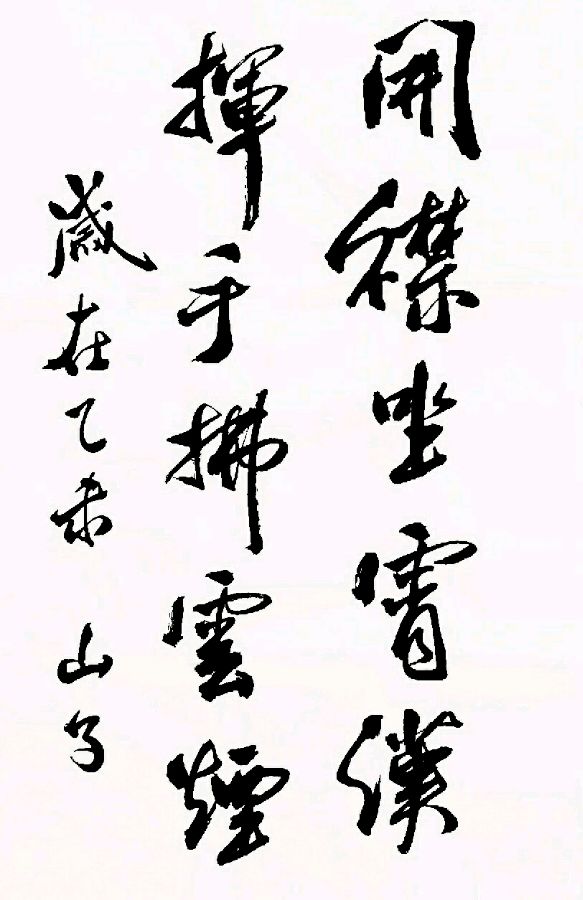 開襟坐霄漢
揮手拂雲煙
歲在乙未 山子